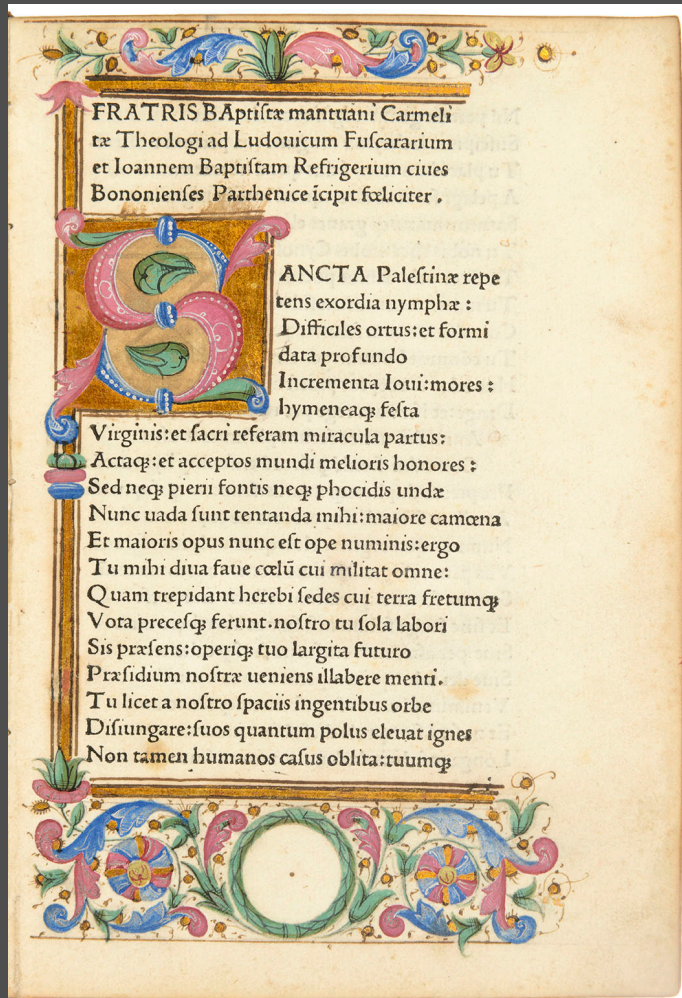 FRATRIS BAptiſtæ mantuani Carmeli
tæ Theologi ad Ludouicum Fuſcararium
et Ioannem Baptiſtam Refrigerium ciues
Bononienſes Parthenice īcipit fœliciter .
SANCTA Paleſtinæ repe
tens exordia nymphæ :
Difficiles ortus:et formi
data profundo
Incrementa Ioui:mores :
hymeneaqꝫ feſta
Virginis:et ſacri referam miracula partus:
Actaqꝫ:et acceptos mundi melioris honores :
Sed neqꝫ pierii fontis neqꝫ phocidis undæ
Nunc uada ſunt tentanda mihi:maiore camœna
Et maioris opus nunc eſt ope numinis:ergo
Tu mihi diua faue cœlū cui militat omne:
Quam trepidant herebi ſedes cui terra fretumqꝫ
Vota preceſqꝫ ferunt.noſtro tu ſola labori
Sis præſens:operiqꝫ tuo largita futuro
Præſidium noſtræ ueniens illabere menti.
Tu licet a noſtro ſpaciis ingentibus orbe
Diſiungare:ſuos quantum polus eleuat ignes
Non tamen humanos caſus oblita:tuumqꝫ